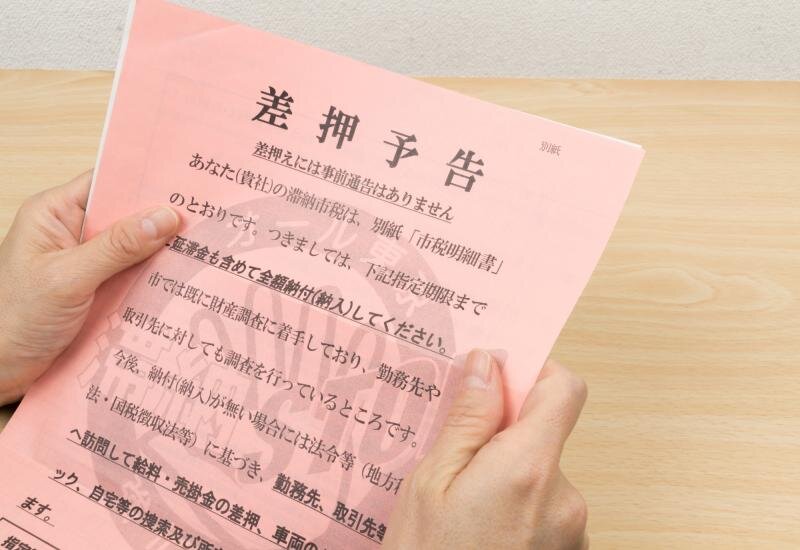 別紙
差押予告
差押えには事前通告はありません
あなた(貴社)の滞納市税は、別紙「市税明細書」
のとおりです。つきましては、下記指定期限まで
延滞金も含めて全額納付(納入)してください。
市では既に財産調査に着手しており、勤務先や
取引先に対しても調査を行っているところです。
今後、納付(納入)が無い場合には法令等(地方税
法・国税徴収法等)に基づき、勤務先、取引先等
へ訪問して給料・売掛金の差押、車両の
ック、自宅等の捜索及び
ます。
指定
滞納
STOP